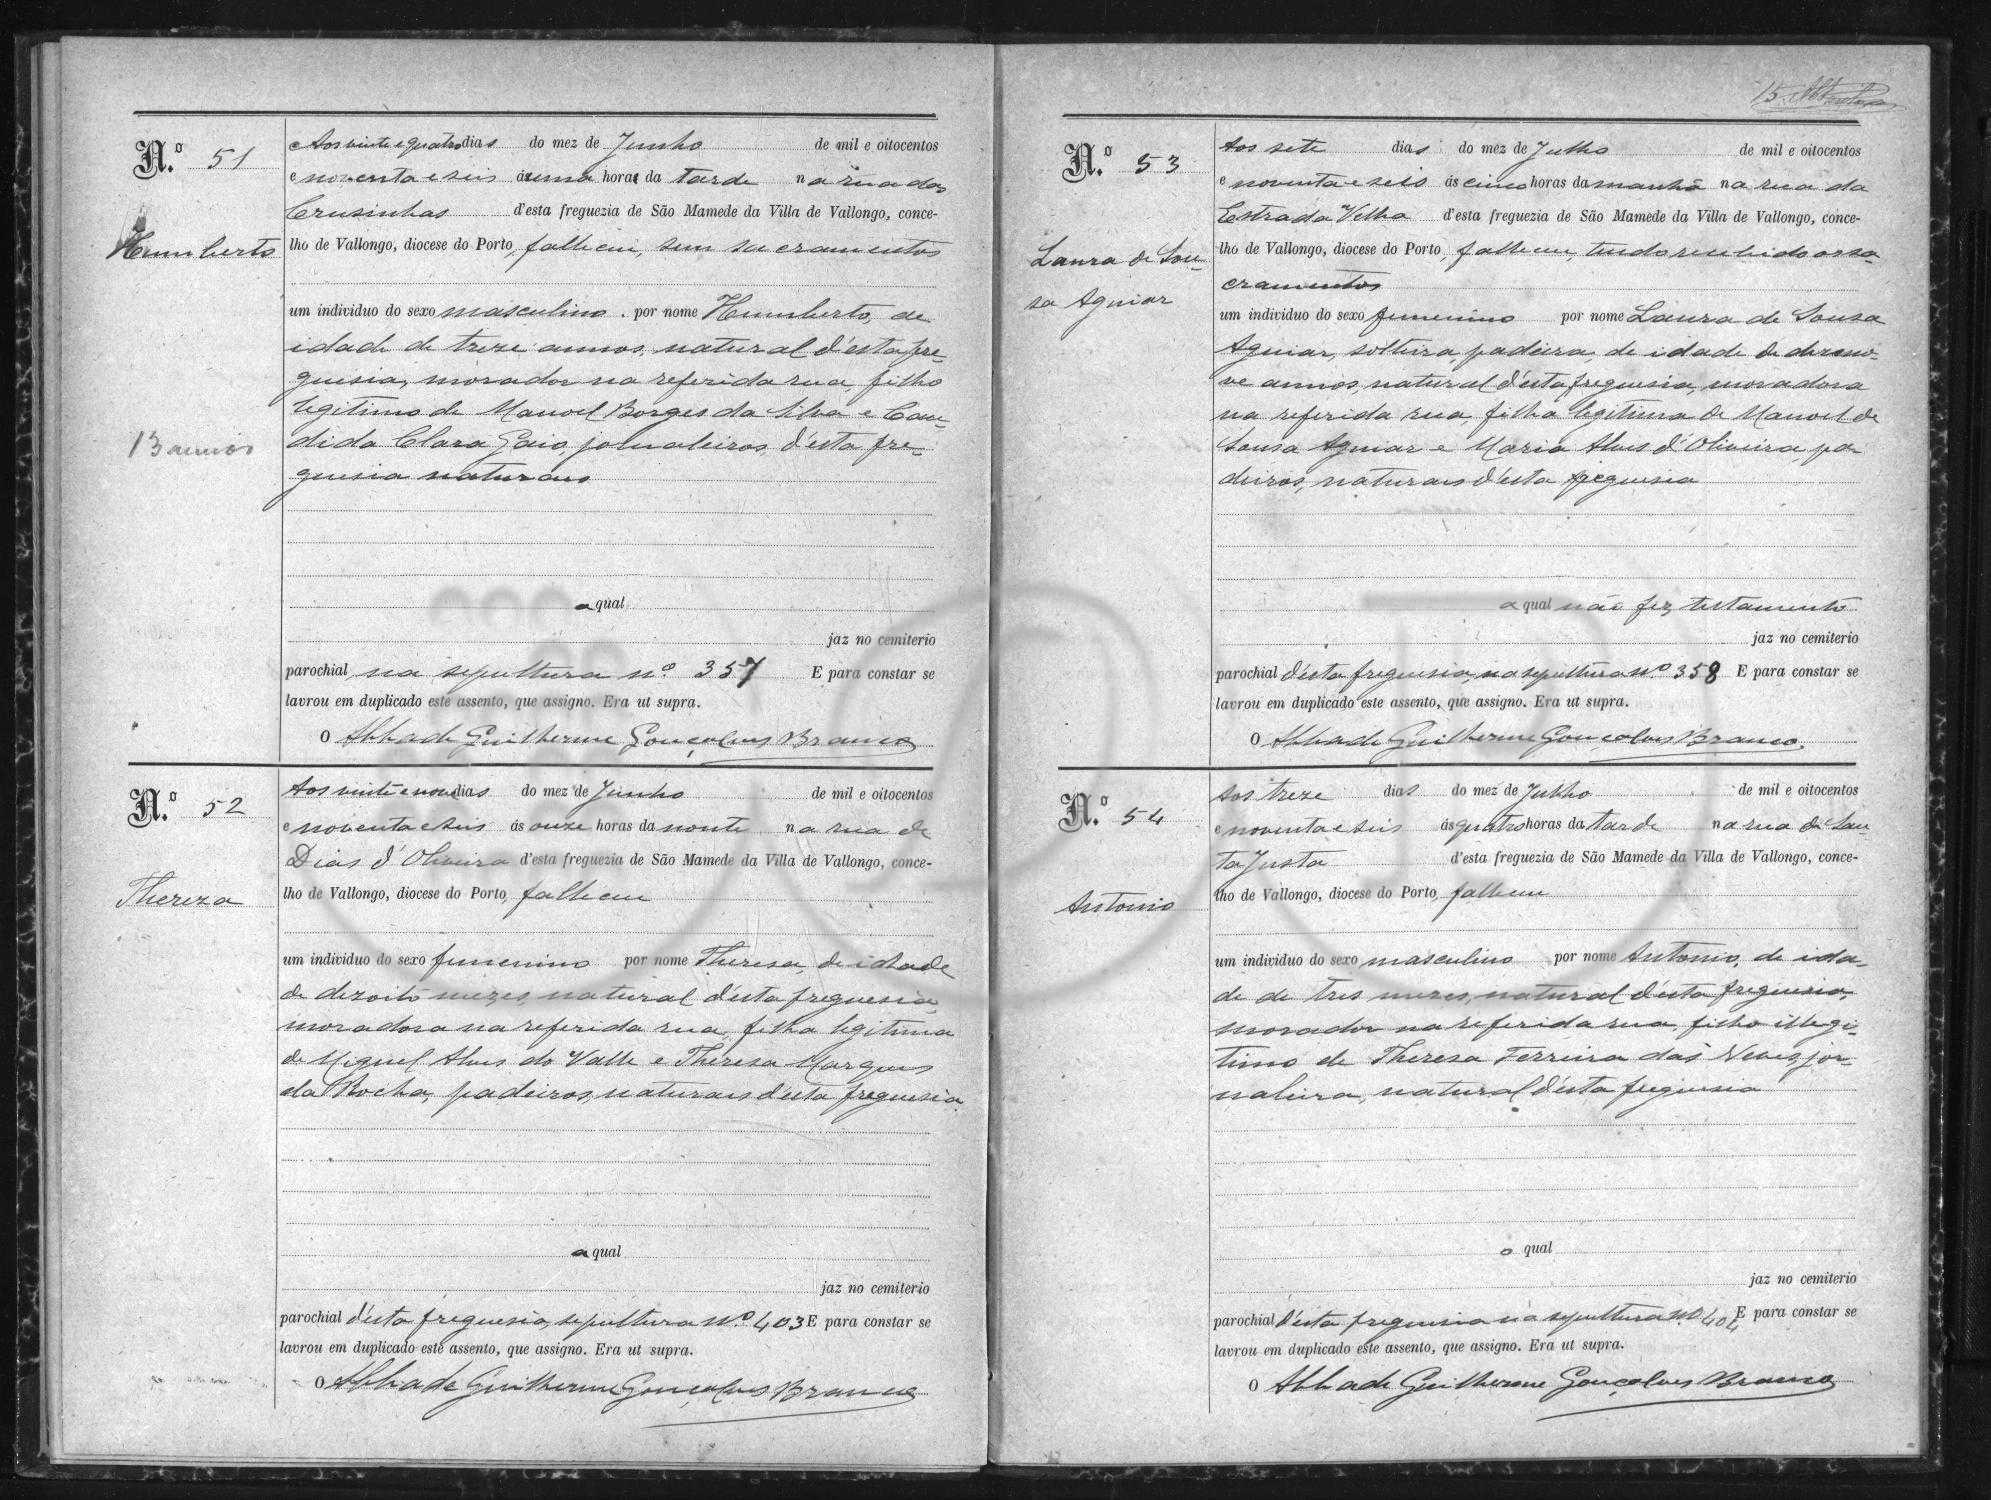 N.º 51
Humberto
13 annos
Aos vinte e quatro dias do mez de Junho de mil e oitocentos
e noventa e seis á uma hora da tarde na rua das
Crusinhas d'esta freguezia de São Mamede da Villa de Vallongo, conce-
lho de Vallongo, diocese do Porto, falleceu, sem sacramentos
um individuo do sexo masculino. por nome Humberto, de
idade de treze annos, natural d'esta fre-
guesia, morador na referida rua, filho
legitimo de Manoel Borges da Silva e Can-
dida Clara Gaio, jornaleiros, d'esta fre-
guesia naturaes
o qual
jaz no cemiterio
parochial na sepultura nº 357 E para constar se
lavrou em duplicado este assento, que assigno. Era ut supra.
O Abbade Guilherme Gonçalves Branco
N.º 52
Thereza
Aos vinte e nove dias do mez de Junho de mil e oitocentos
e noventa e seis ás onze horas da noute na rua de
Dias d'Oliveira d'esta freguezia de São Mamede da Villa de Vallongo, conce-
lho de Vallongo, diocese do Porto, falleceu
um individuo do sexo femenino por nome Theresa, de idade
de dezoito mezes, natural d'esta freguesia,
moradora na referida rua, filha legitima
de Miguel Alves do Valle e Theresa Marques
da Rocha, padeiros, naturaes d'esta freguesia.
a qual
jaz no cemiterio
parochial d'esta freguesia, sepultura Nº 403 E para constar se
lavrou em duplicado este assento, que assigno. Era ut supra.
O Abbade Guilherme Gonçalves Branco
15
N.º 53
Laura de Sou-
sa Aguiar
Aos sete dias do mez de Julho de mil e oitocentos
e noventa e seis ás cinco horas da manhã na rua da
Estrada Velha d'esta freguezia de São Mamede da Villa de Vallongo, conce-
lho de Vallongo, diocese do Porto, falleceu, tendo recebido os sa-
cramentos
um individuo do sexo femenino por nome Laura de Sousa
Aguiar, solteira, padeira, de idade de desano-
ve annos, natural d'esta freguesia, moradora
na referida rua, filha legitima de Manoel de
Sousa Aguiar e Maria Alves d'Oliveira, pa-
deiros, naturaes d'esta freguesia
a qual não fez testamento
jaz no cemiterio
parochial d'esta freguesia, na sepultura Nº 358 E para constar se
lavrou em duplicado este assento, que assigno. Era ut supra.
O Abbade Guilherme Gonçalves Branco
N.º 54
Antonio
Aos treze dias do mez de Julho de mil e oitocentos
e noventa e seis ás quatro horas da tarde na rua de San-
ta Justa d'esta freguezia de São Mamede da Villa de Vallongo, conce-
lho de Vallongo, diocese do Porto, falleceu
um individuo do sexo masculino por nome Antonio, de ida-
de de tres mezes, natural d'esta freguesia,
morador na referida rua, filho illegi-
timo de Theresa Ferreira das Neves, jor-
naleira, natural d'esta freguesia
o qual
jaz no cemiterio
parochial d'esta freguesia na sepultura Nº 404 E para constar se
lavrou em duplicado este assento, que assigno. Era ut supra.
O Abbade Guilherme Gonçalves Branco